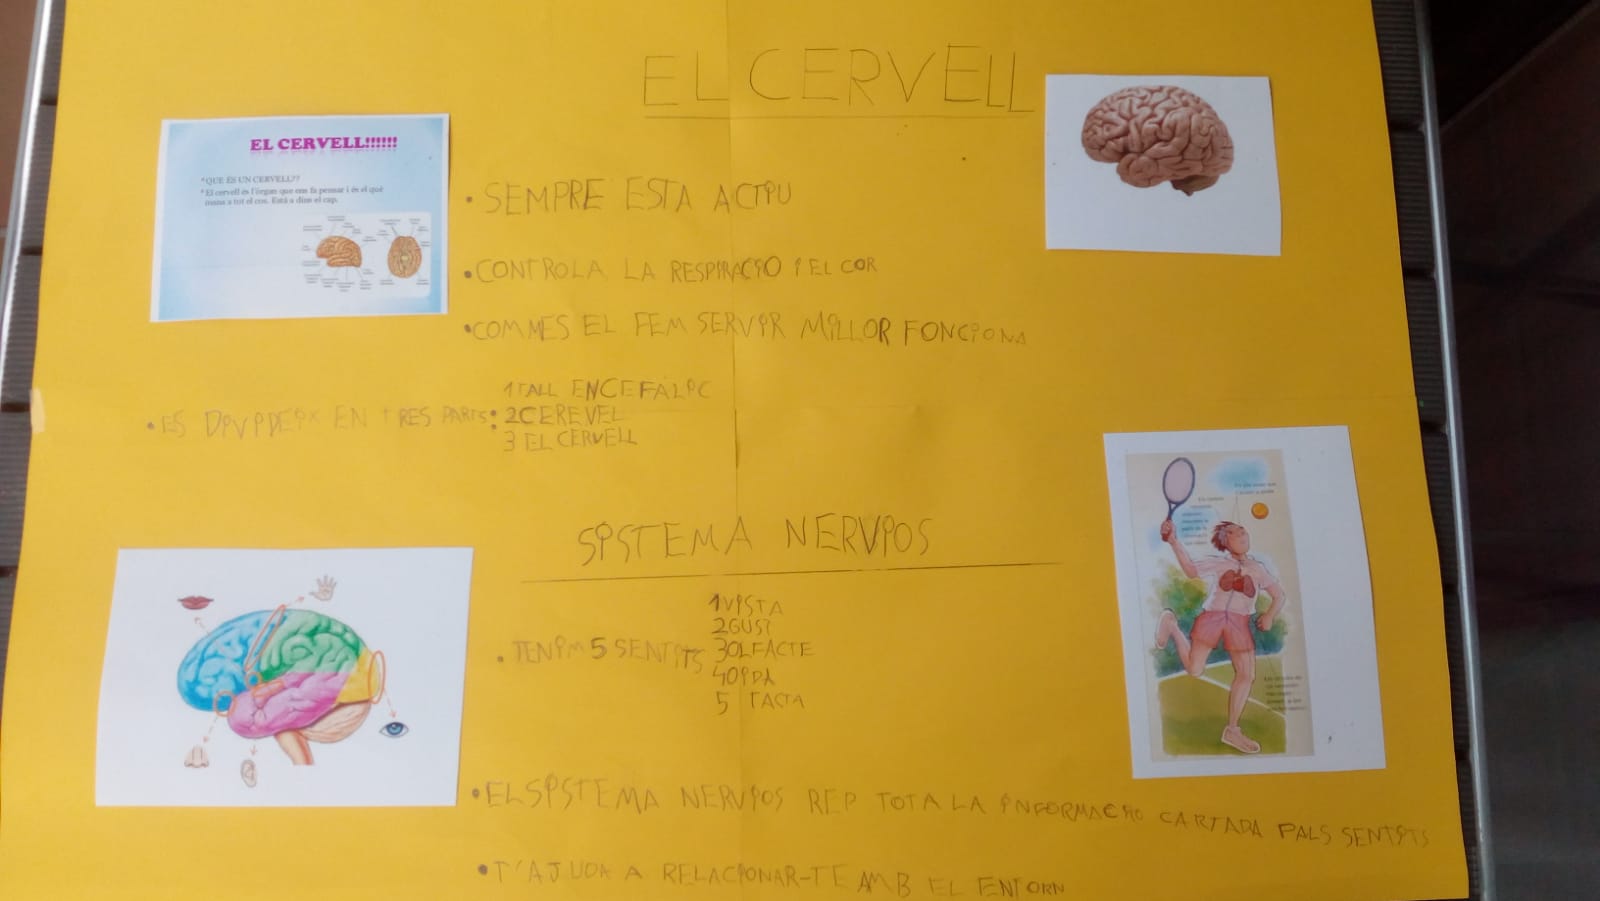 EL CERVELL
EL CERVELL!!!!!!
*QUE ÉS UN CERVELL??
*El cervell és l'òrgan que ens fa pensar i és el què
mana a tot el cos. Està a dins el cap.
• SEMPRE ESTA ACTIU
• CONTROLA LA RESPIRACIO I EL COR
• COM MES EL FEM SERVIR MILLOR FONCIONA
• ES DIVIDEIX EN TRES PARTS:
1 TALL ENCEFÀLIC
2 CEREVEL
3 EL CERVELL
SISTEMA NERVIOS
• TENIM 5 SENTITS
1 VISTA
2 GUST
3 OLFACTE
4 OIDA
5 TACTA
• EL SISTEMA NERVIOS REP TOTA LA INFORMACIO CARTADA PALS SENTITS
• T'AJUDA A RELACIONAR-TE AMB EL ENTORN